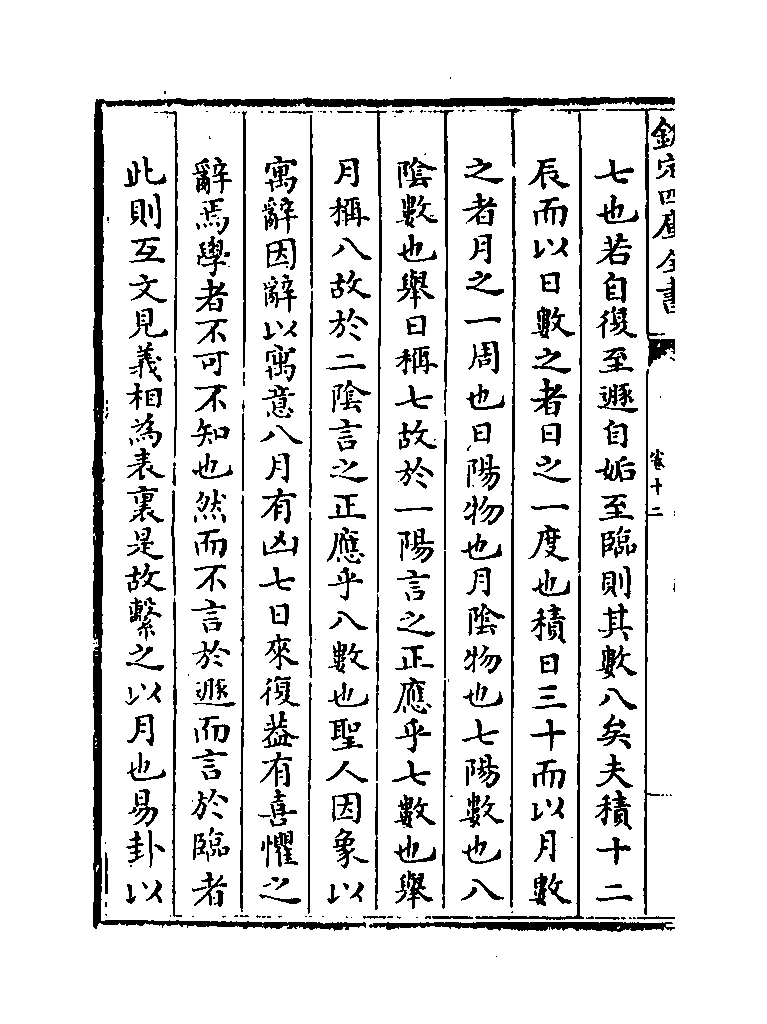 欽定四庫全書
卷十二
七也若自復至遯自姤至臨則其數八矣夫積十二
辰而以日數之者日之一度也積日三十而以月數
之者月之一周也日陽物也月陰物也七陽數也八
陰數也舉日稱七故於一陽言之正應乎七數也舉
月稱八故於二陰言之正應乎八數也聖人因象以
寓辭因辭以寓意八月有凶七日來復葢有喜懼之
辭焉學者不可不知也然而不言於遯而言於臨者
此則互文見義相為表裏是故繫之以月也易卦以